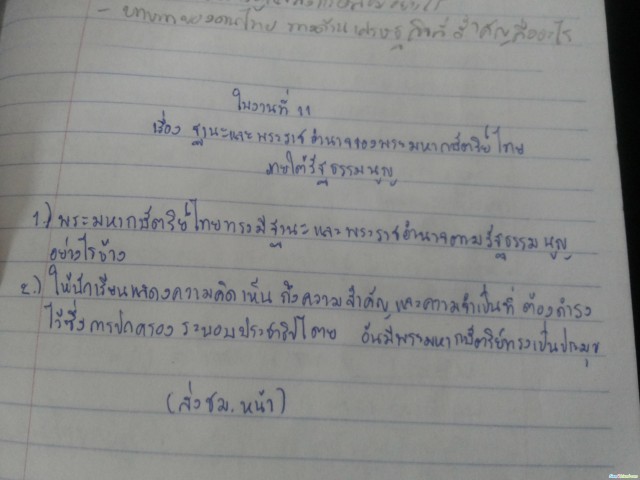 - บทบาทของคนไทย ทางด้านเศรษฐกิจที่สำคัญคืออะไร
ใบงานที่ 11
เรื่อง ฐานะและพระราชอำนาจของพระมหากษัตริย์ไทย
ภายใต้รัฐธรรมนูญ
1.) พระมหากษัตริย์ไทยทรงมีฐานะและพระราชอำนาจตามรัฐธรรมนูญ
อย่างไรบ้าง
2.) ให้นักเรียนแสดงความคิดเห็น ถึงความสำคัญและความจำเป็นที่ต้องดำรง
ไว้ซึ่งการปกครองระบอบประชาธิปไตย อันมีพระมหากษัตริย์ทรงเป็นประมุข
(ส่งชม.หน้า)